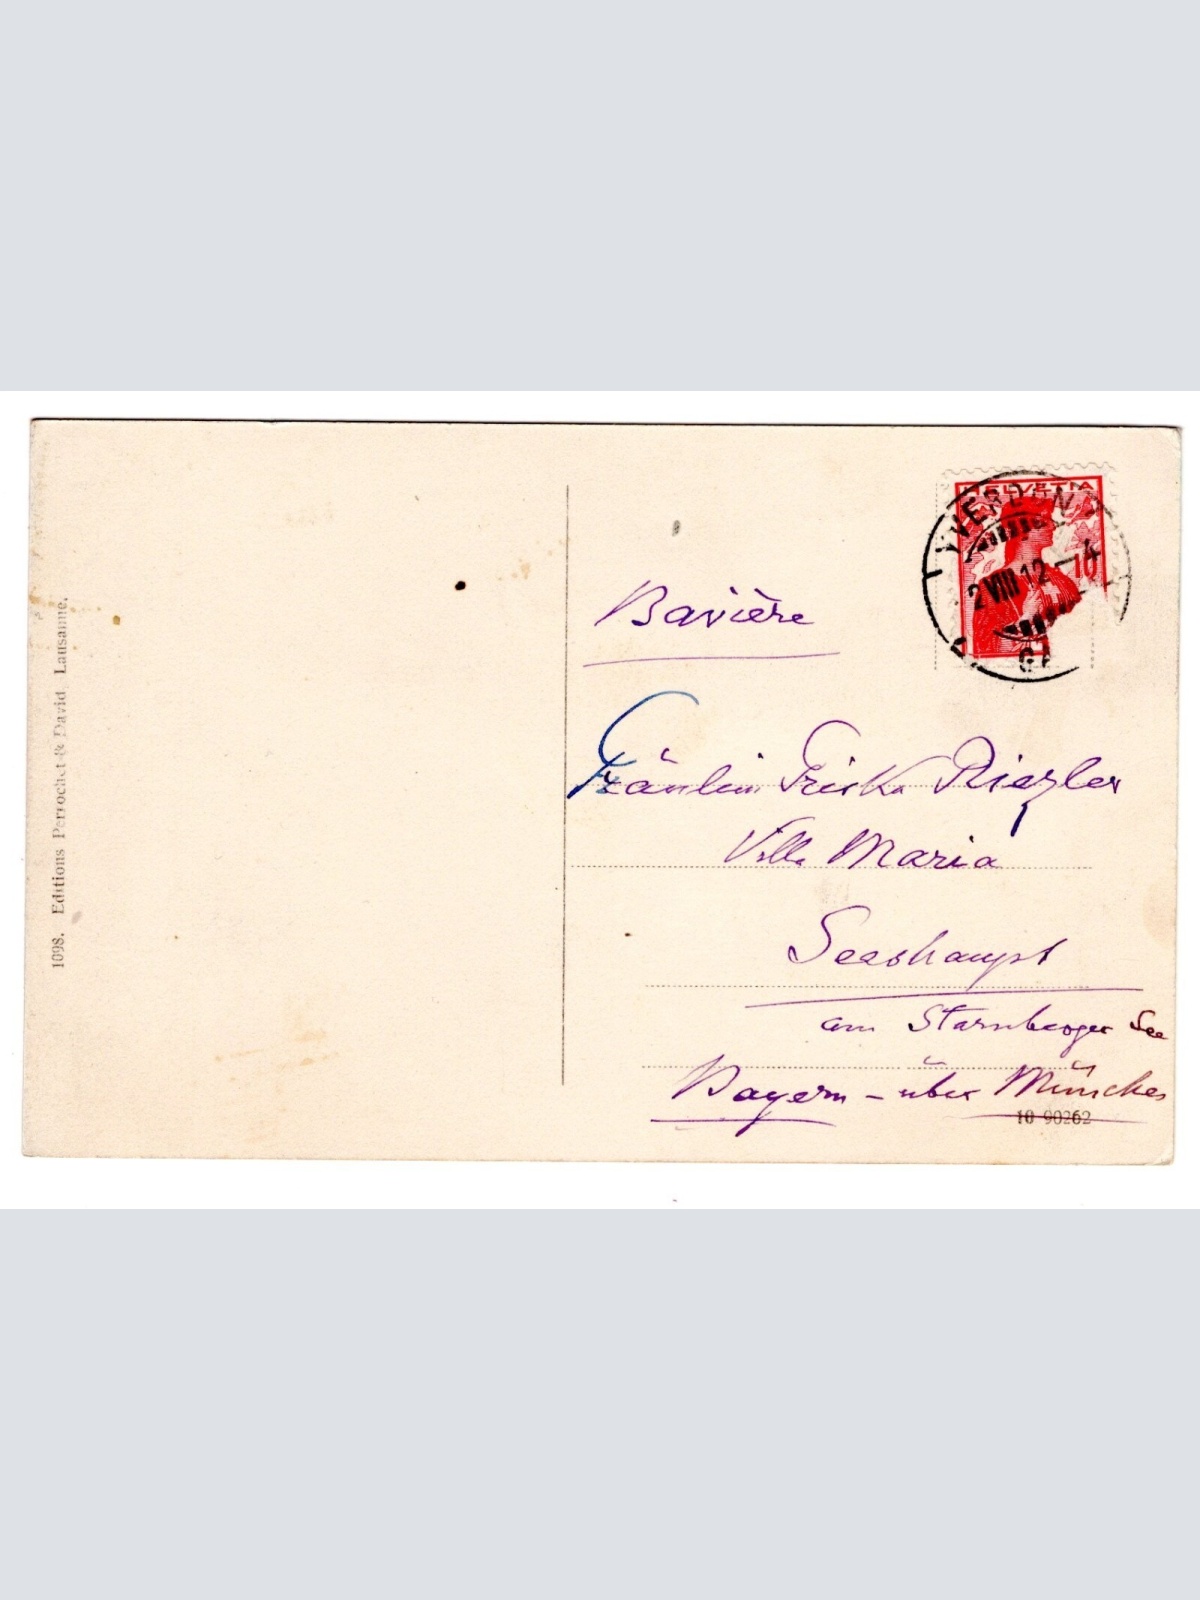 1098. Editions Perrochet & David Lausanne.
HELVETIA
10
YVERDON
2 VIII 12 – 4
GA
Bavière
Fräulein Friska Riezler
Villa Maria
Seeshaupt
am Starnberger See
Bayern – über München
10 90262